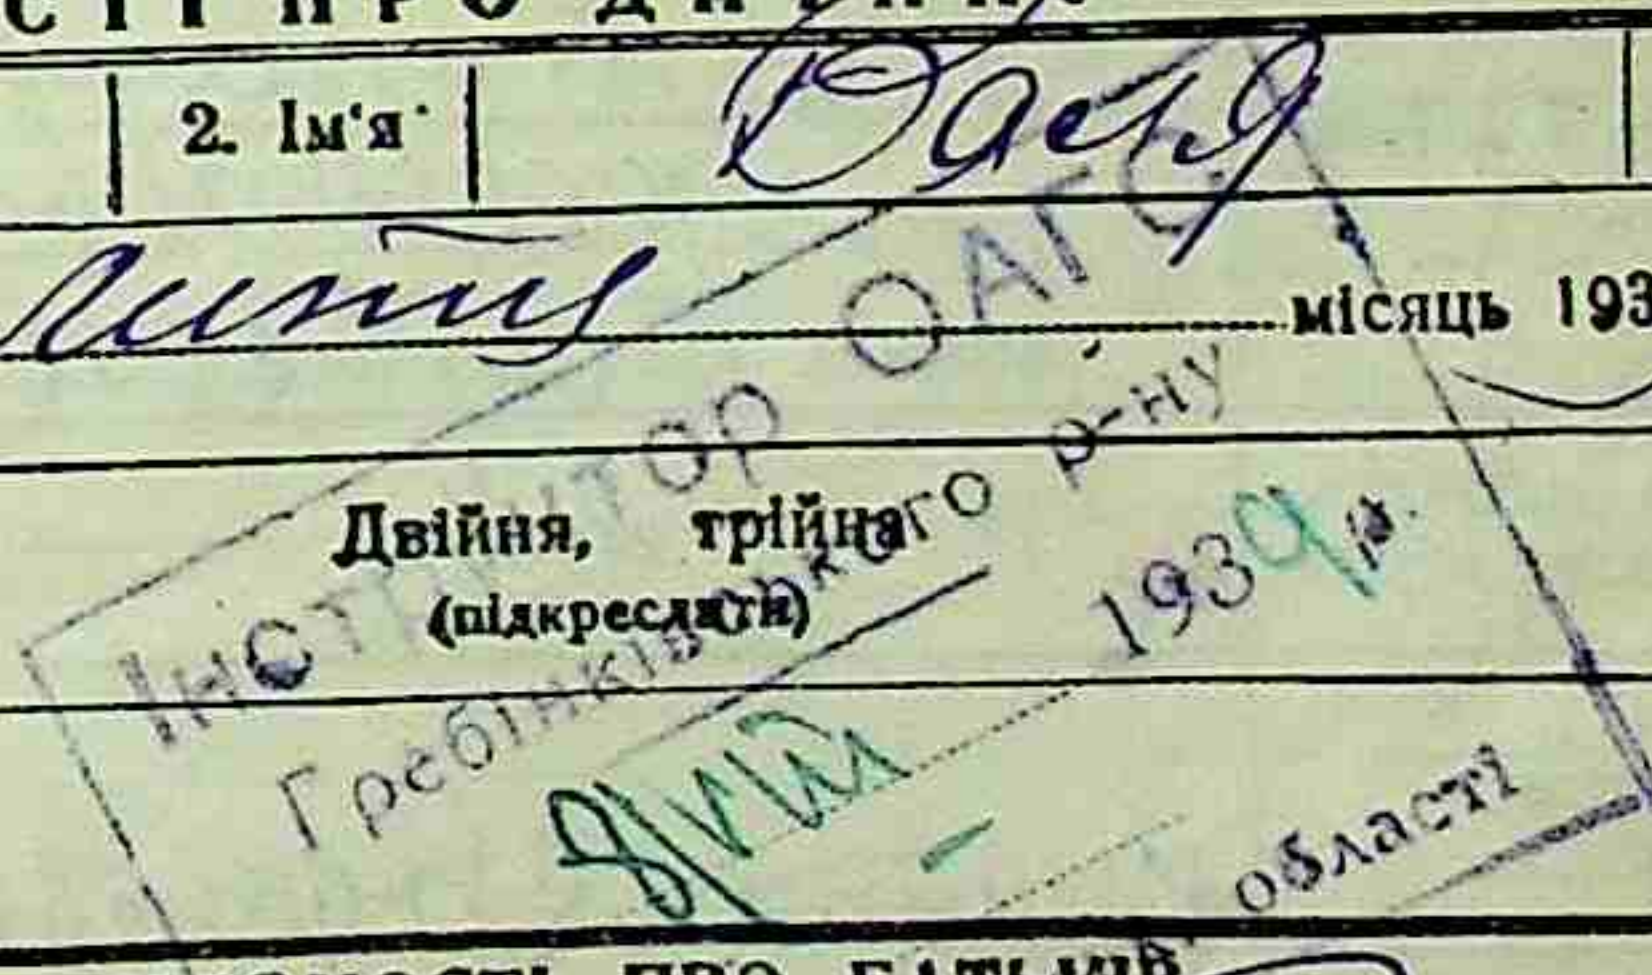 2. Ім'я Вася
місяць 193
Двійня, трійня
(підкреслити)
Інспектор ОАГС
Гребінківського р-ну
8/VIII 1939 р.
області